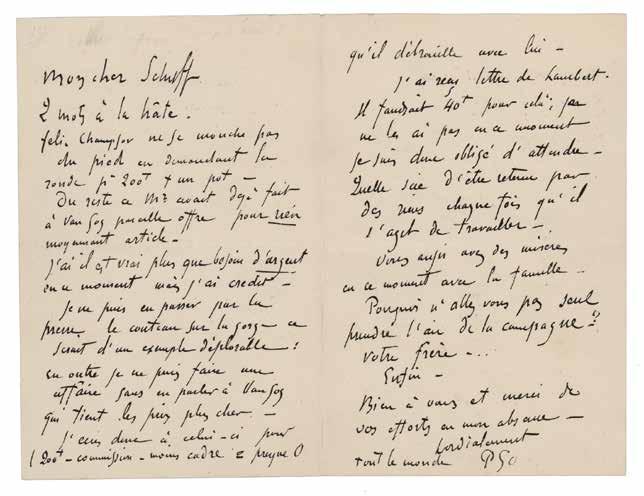 Mon cher Schuff
2 mots à la hâte.
Felix Champsor ne se mouche pas
du pied en demandant la
ronde pr 200f + un pot –
Du reste ce Mr avait déjà fait
à Van Gog pareille offre pour rien
moyennant article –
J'ai il est vrai plus que besoin d'argent
en ce moment mais j'ai crédit –
Je ne puis en passer par la
presse le couteau sur la gorge – ce
serait d'un exemple déplorable :
en outre je ne puis faire une
affaire sans en parler à Van Gog
qui tient les prix plus cher. –
J'écris donc à celui-ci pour
(200f – commission – moins cadre = presque 0
qu'il débrouille avec lui –
J'ai reçu lettre de Lambert.
Il faudrait 40f pour celà; je
ne les ai pas en ce moment
je suis donc obligé d'attendre –
Quelle scie d'être retenu par
des riens chaque fois qu'il
s'agit de travailler –
Vous aussi avez des misères
en ce moment avec la famille –
Pourquoi n'allez vous pas seul
prendre l'air de la campagne –?
Votre frère – ...
Enfin –
Bien à vous et merci de
vos efforts en mon absence –
Cordialement
tout le monde PGo